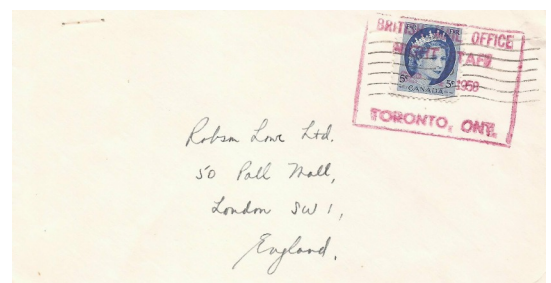 BRITISH OFFICE
1958
TORONTO, ONT.
5¢ CANADA 5¢
Robson Lowe Ltd.
50 Pall Mall,
London SW1,
England.